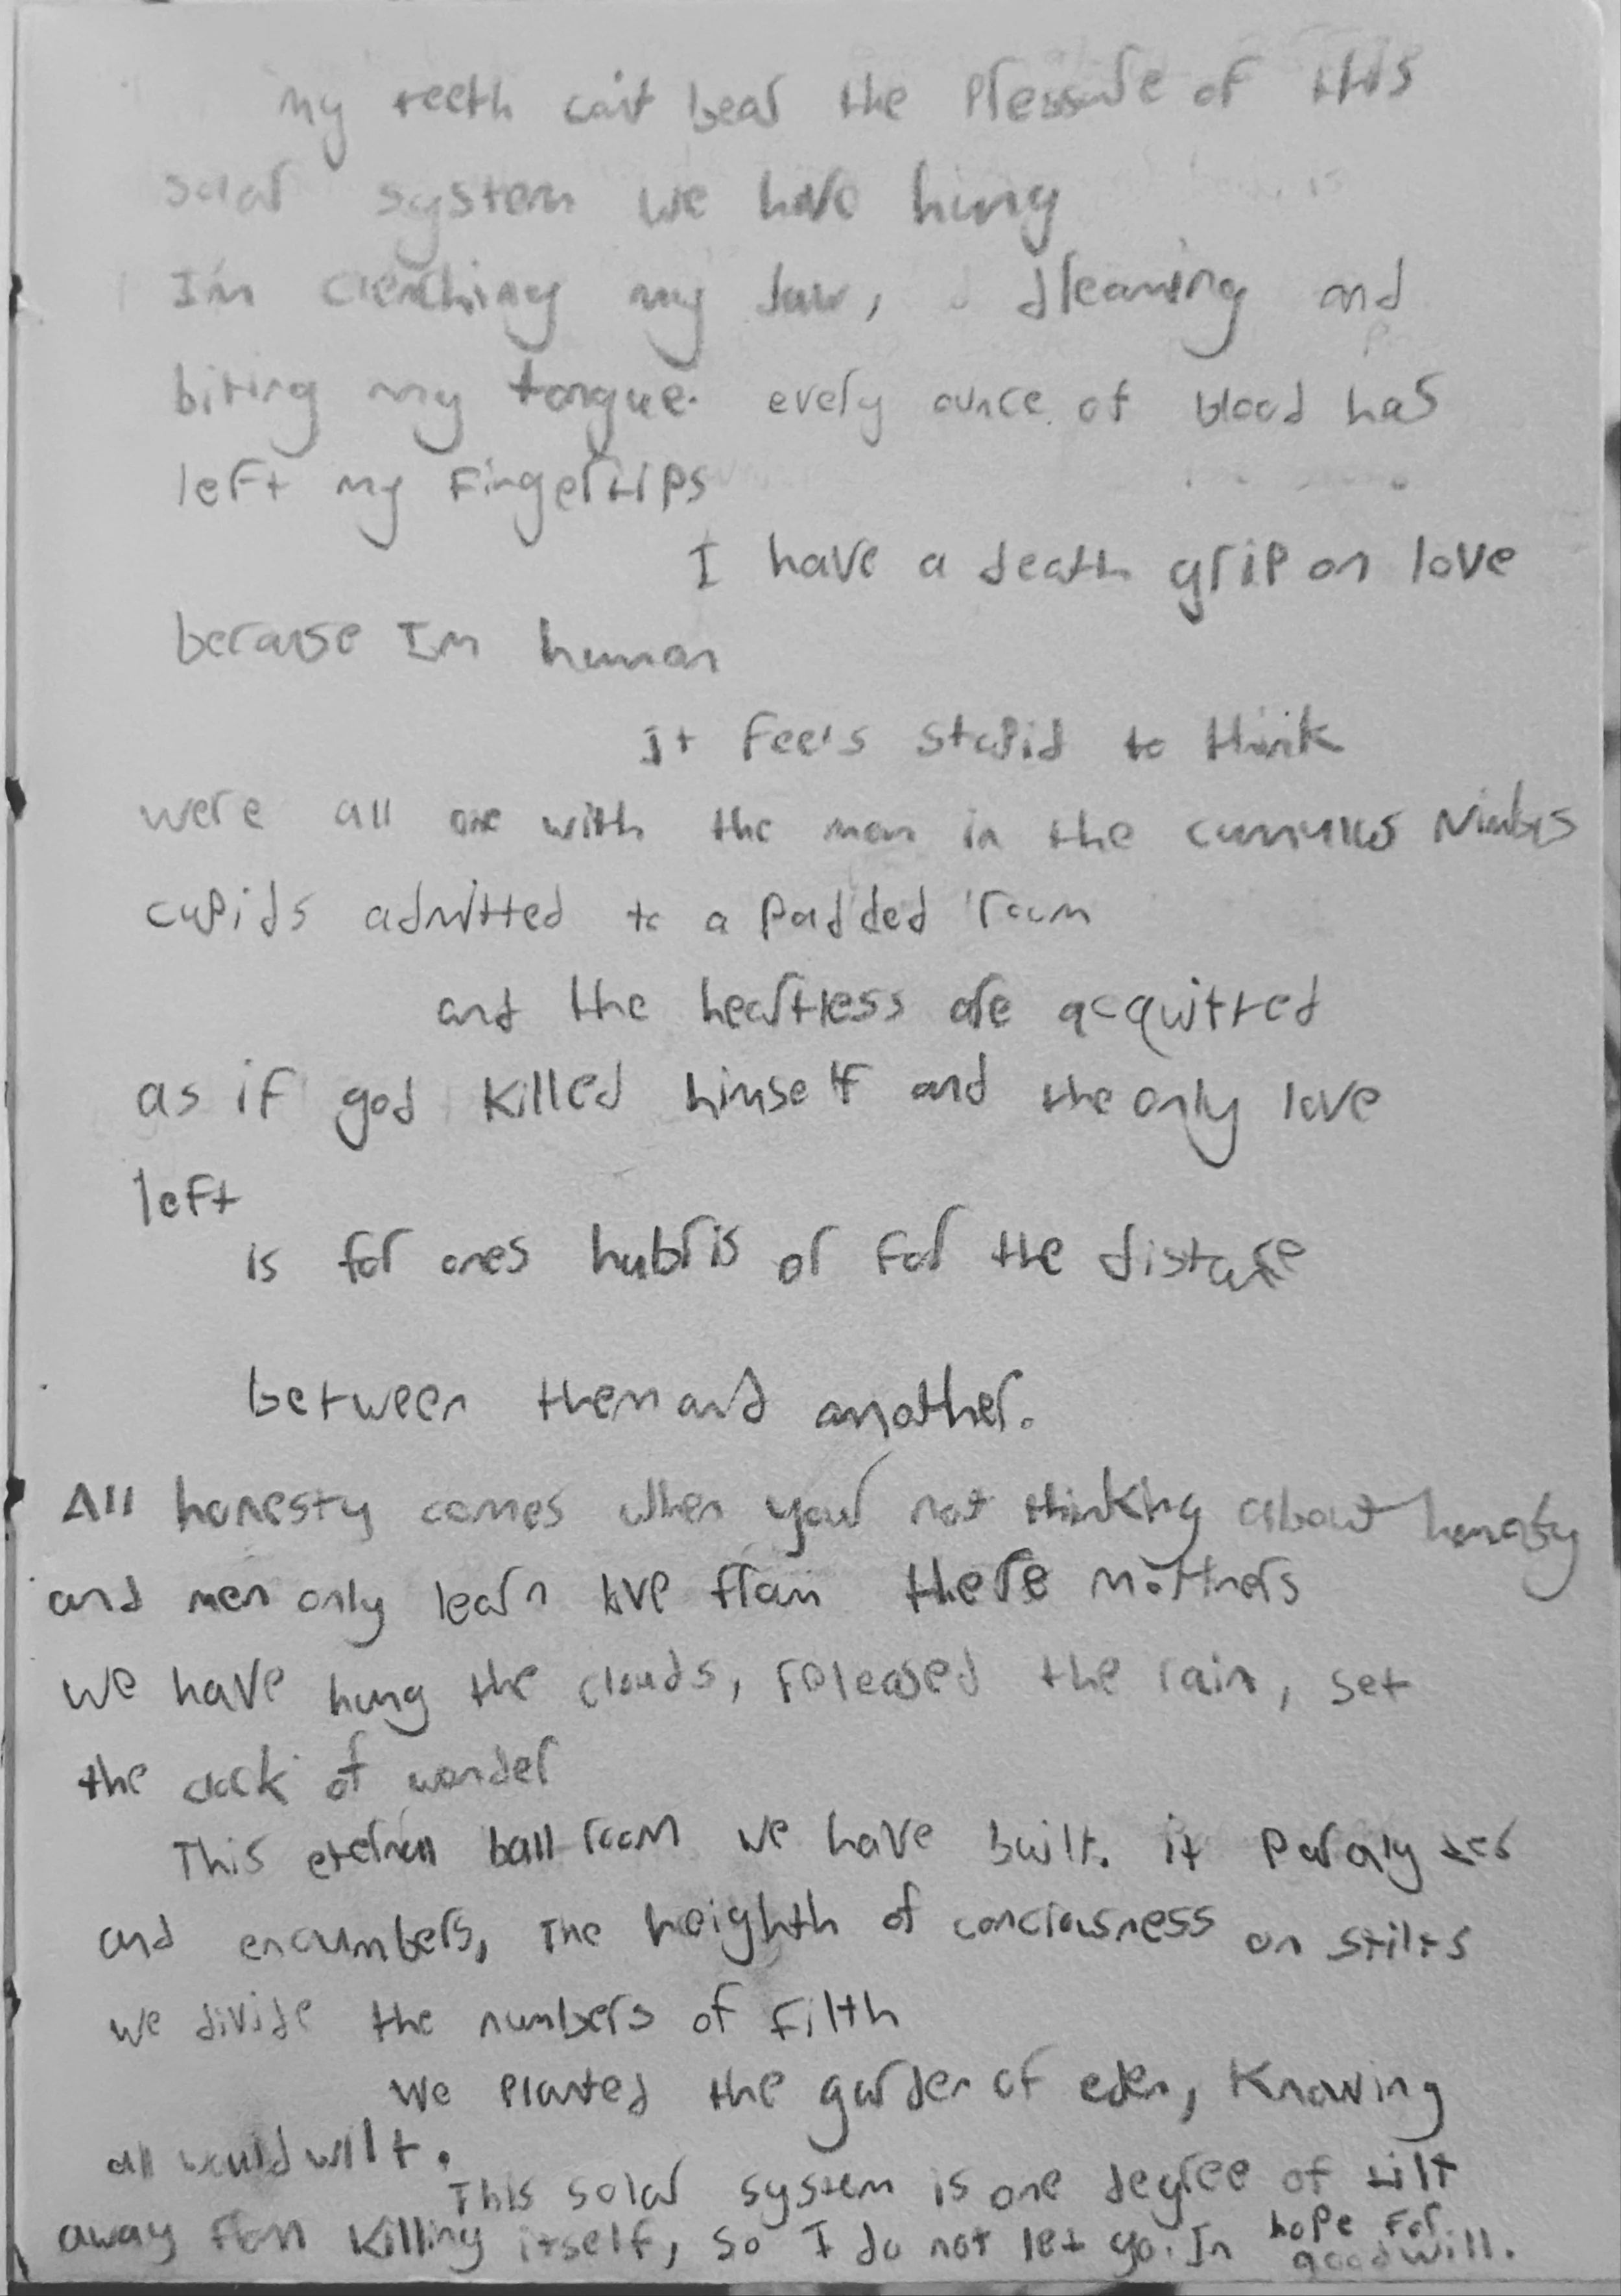 my teeth can't bear the pressure of this
solar system we have hung
I'm clenching my jaw, dreaming and
biting my tongue. every ounce of blood has
left my fingertips
I have a death grip on love
because Im human
It feels stupid to think
were all one with the man in the cumulus Nimbis
cupids admitted to a padded room
and the heartless are acquitted
as if god killed himself and the only love
left
is for ones hubris or for the distance
between them and another.
All honesty comes when your not thinking about honesty
and men only learn love from there mothers
we have hung the clouds, released the rain, set
the clock of wonder
This eternall ballroom we have built. it paralyzes
and encumbers, The heighth of conciousness on stilts
we divide the numbers of filth
We planted the garden of eden, Knowing
all would wilt.
This solar system is one degree of tilt
away from killing itself, so I do not let go. In hope for
goodwill.